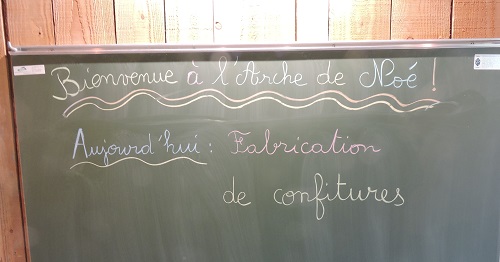 Bienvenue à l'Arche de Noé !
Aujourd'hui : Fabrication
de confitures